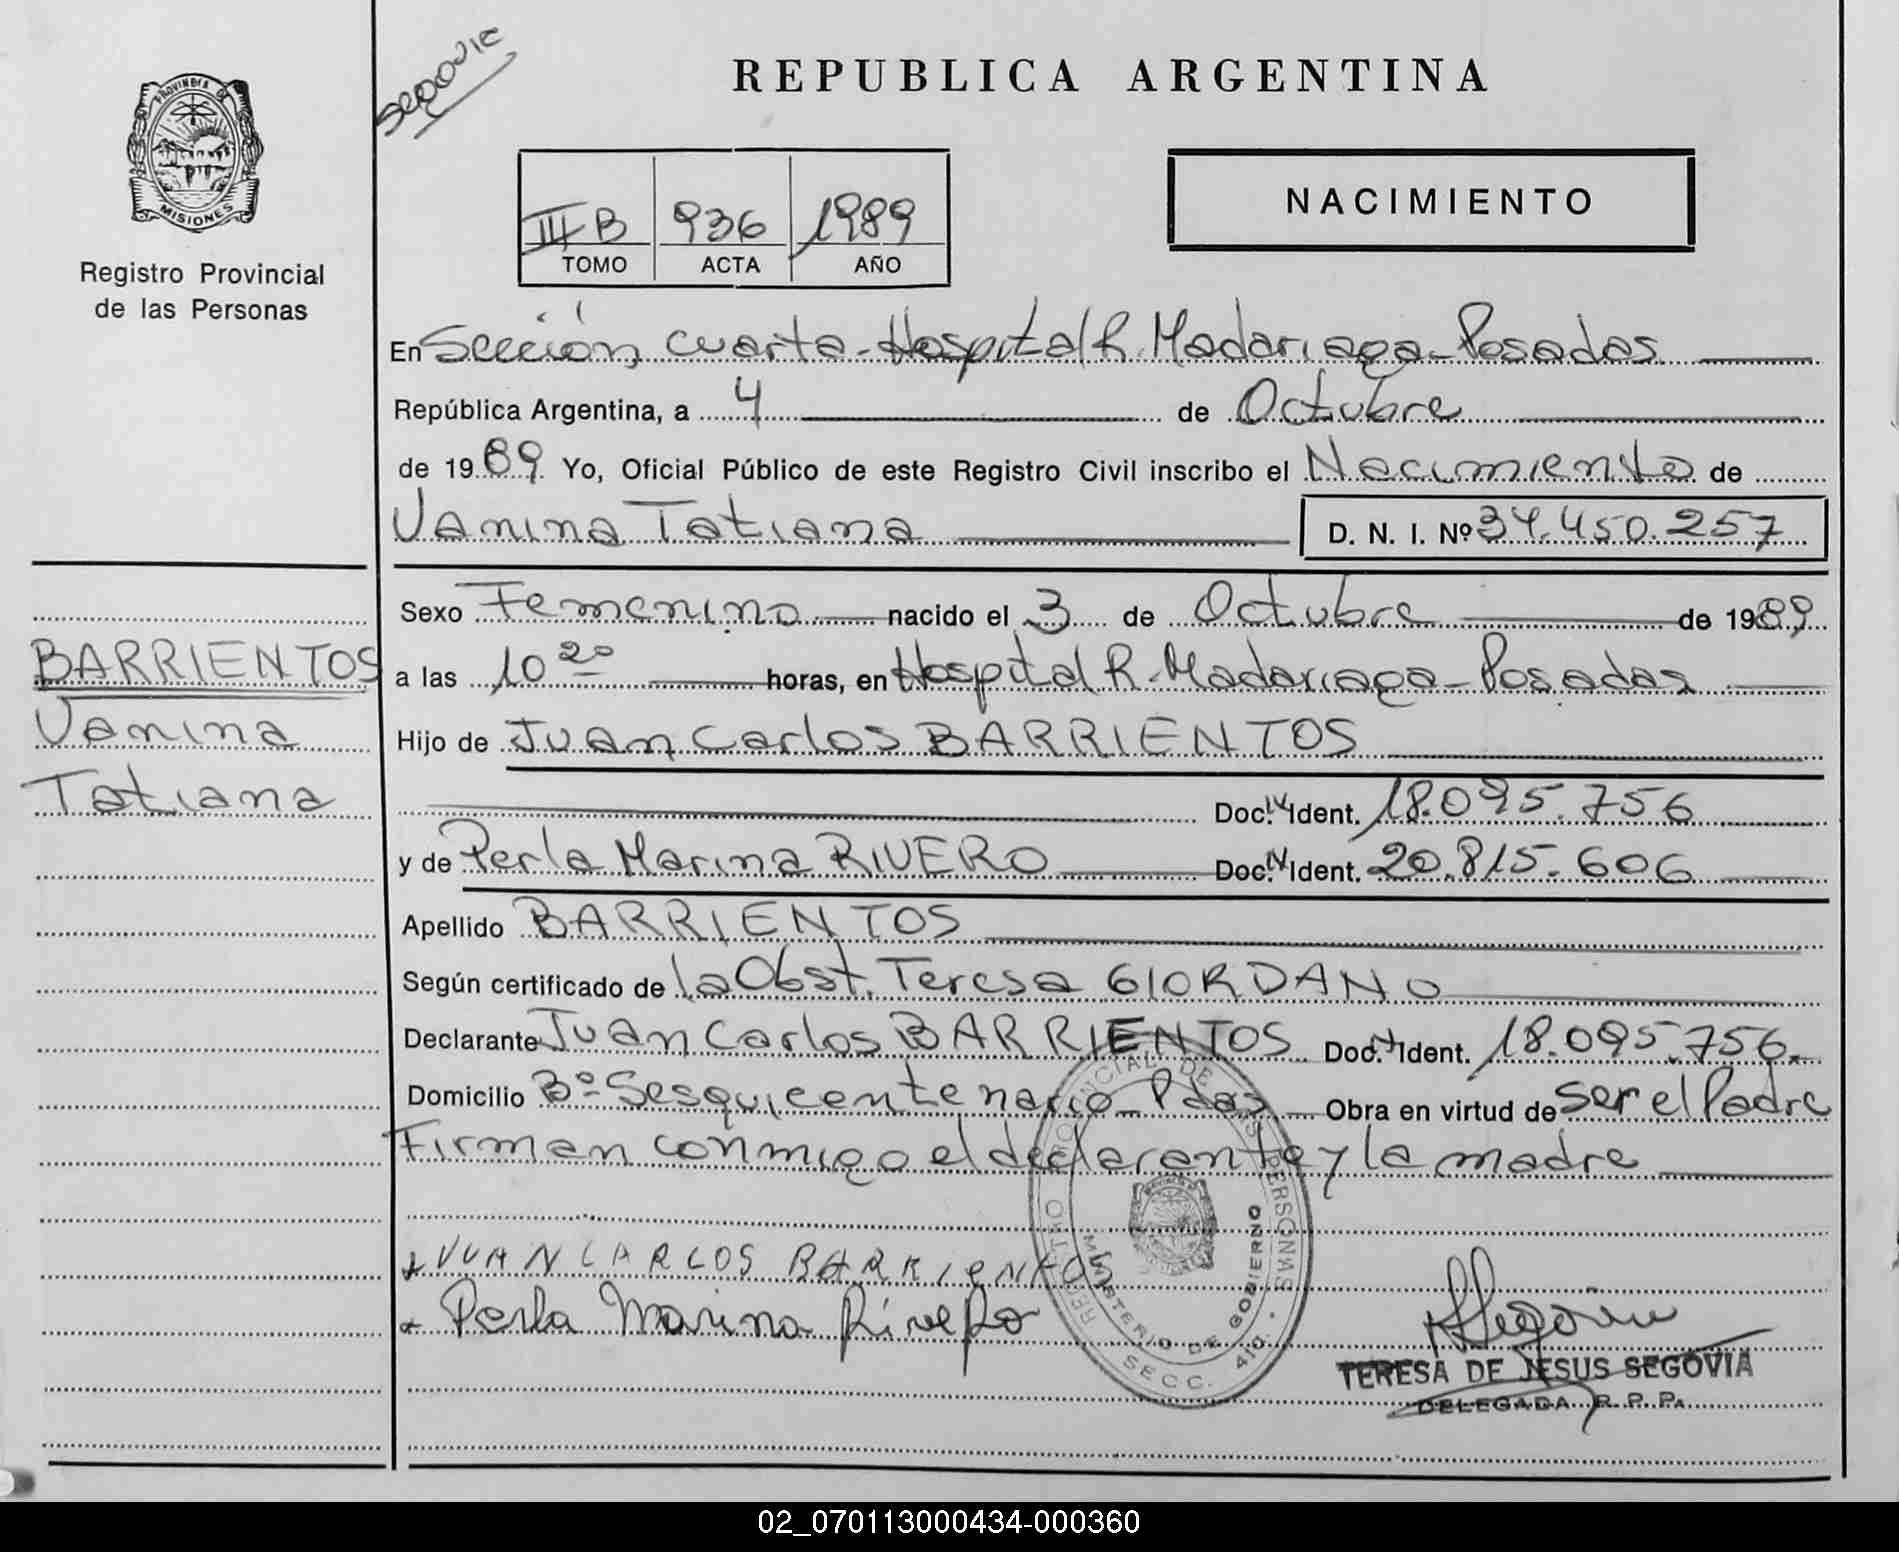 Segovia
REPUBLICA ARGENTINA
PROVINCIA DE
MISIONES
Registro Provincial
de las Personas
III B 936 1989
TOMO ACTA AÑO
NACIMIENTO
En Sección cuarta - Hospital R. Madariaga - Posadas
República Argentina, a 4 de Octubre
de 1989 Yo, Oficial Público de este Registro Civil inscribo el Nacimiento de
Vanina Tatiana D. N. I. Nº 34.450.257
Sexo Femenino nacido el 3 de Octubre de 1989
BARRIENTOS
Vanina
Tatiana
a las 10 20 horas, en Hospital R. Madariaga - Posadas
Hijo de Juan Carlos BARRIENTOS
Doc. N Ident. 18.095.756
y de Perla Marina RIVERO Doc. N Ident. 20.815.606
Apellido BARRIENTOS
Según certificado de la Obst. Teresa GIORDANO
Declarante Juan Carlos BARRIENTOS Doc. N Ident. 18.095.756.
Domicilio Bº Sesquicentenario - Pdas Obra en virtud de ser el Padre
Firman conmigo el declarante y la madre
JUAN CARLOS BARRIENTOS
Perla Marina Rivero
REGISTRO PROVINCIAL DE LAS PERSONAS
MINISTERIO DE GOBIERNO
SECC. 4ta.
Segovia
TERESA DE JESUS SEGOVIA
DELEGADA R. P. P.
02_070113000434-000360